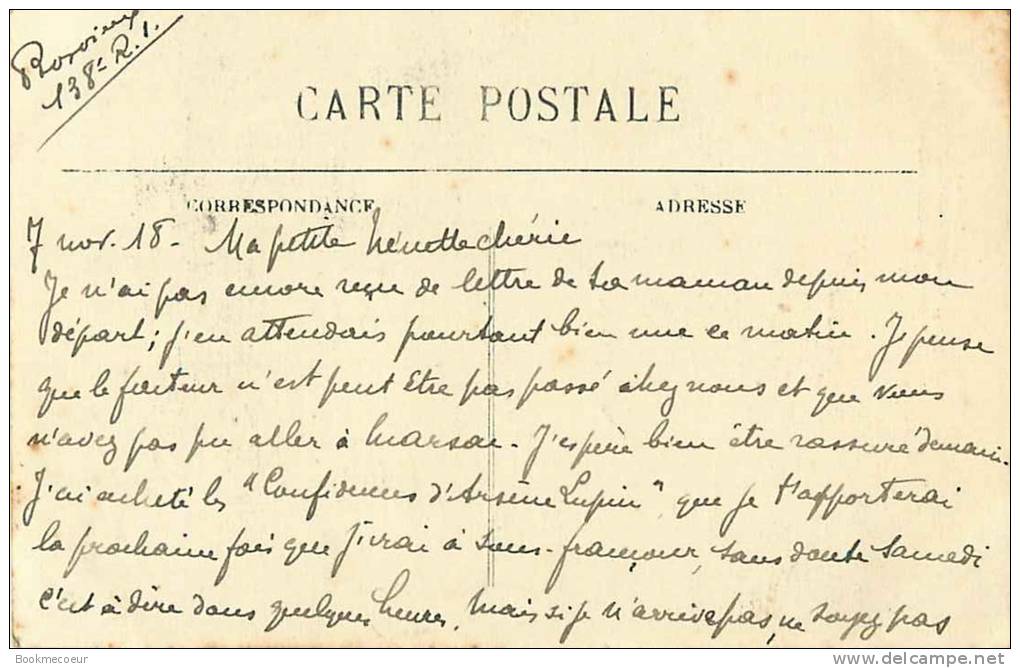 138e R.I.
CARTE POSTALE
CORRESPONDANCE
ADRESSE
7 nov. 18 - Ma petite Nénette chérie
Je n'ai pas encore reçu de lettre de ta maman depuis mon
départ ; j'en attendais pourtant bien une ce matin. Je pense
que le facteur n'est peut être pas passé chez nous et que vous
n'avez pas pu aller à Marsac - J'espère bien être rassuré demain.
J'ai acheté les "Confidences d'Arsène Lupin" que je t'apporterai
la prochaine fois que j'irai à sans doute Samedi
c'est à dire dans quelques heures. Mais si je n'arrive pas, ne soyez pas
Bookmecoeur
delcampe.net